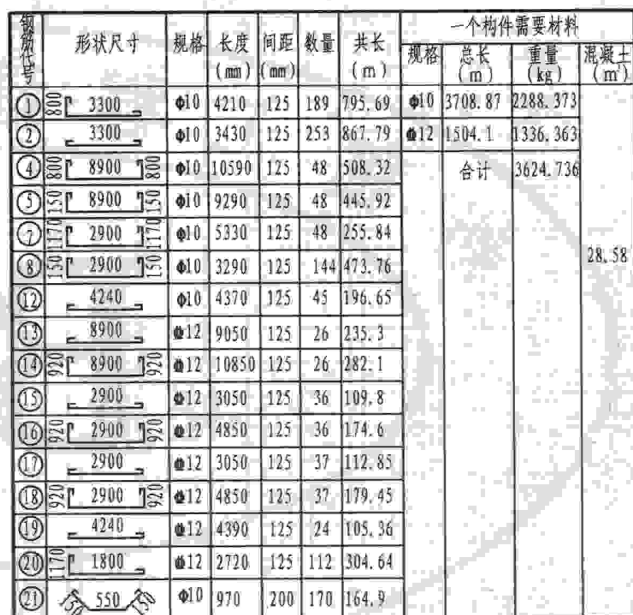 钢筋代号 形状尺寸 规格 长度(mm) 间距(mm) 数量 共长(m) 一个构件需要材料
规格 总长(m) 重量(kg) 混凝土(m³)
① 800 3300 Φ10 4210 125 189 795.69 Φ10 3708.87 2288.373
② 3300 Φ10 3430 125 253 867.79 Φ12 1504.1 1336.363
④ 800 8900 800 Φ10 10590 125 48 508.32 合计 3624.736
⑤ 150 8900 150 Φ10 9290 125 48 445.92
⑦ 1170 2900 1170 Φ10 5330 125 48 255.84
⑧ 150 2900 150 Φ10 3290 125 144 473.76 28.58
⑫ 4240 Φ10 4370 125 45 196.65
⑬ 8900 Φ12 9050 125 26 235.3
⑭ 920 8900 920 Φ12 10850 125 26 282.1
⑮ 2900 Φ12 3050 125 36 109.8
⑯ 920 2900 920 Φ12 4850 125 36 174.6
⑰ 2900 Φ12 3050 125 37 112.85
⑱ 920 2900 920 Φ12 4850 125 37 179.45
⑲ 4240 Φ12 4390 125 24 105.36
⑳ 1170 1800 Φ12 2720 125 112 304.64
㉑ 150 550 150 Φ10 970 200 170 164.9